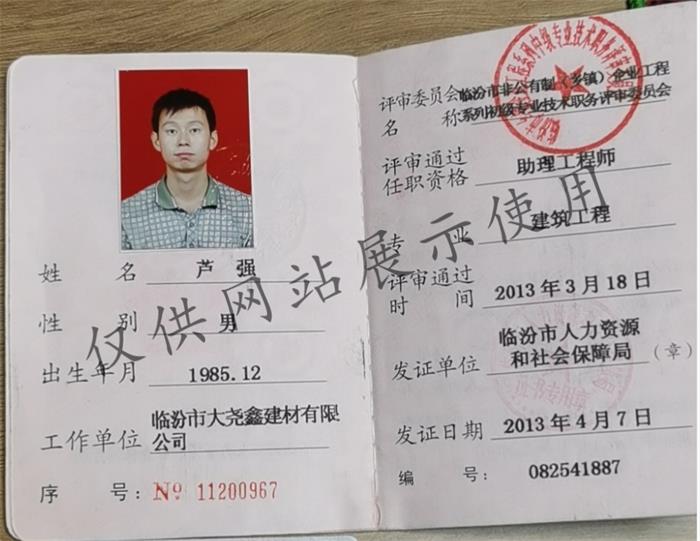 姓 名 芦 强
性 别 男
出生年月 1985.12
工作单位 临汾市大尧鑫建材有限
公司
序 号: № 11200967
评审委员会 临汾市非公有制（乡镇）企业工程
名 称 系列初级专业技术职务评审委员会
评审通过
任职资格 助理工程师
专 业 建筑工程
评审通过
时 间 2013年3月18日
发证单位 临汾市人力资源
和社会保障局 (章)
发证日期 2013年4月7日
编 号 082541887
仅供网站展示使用